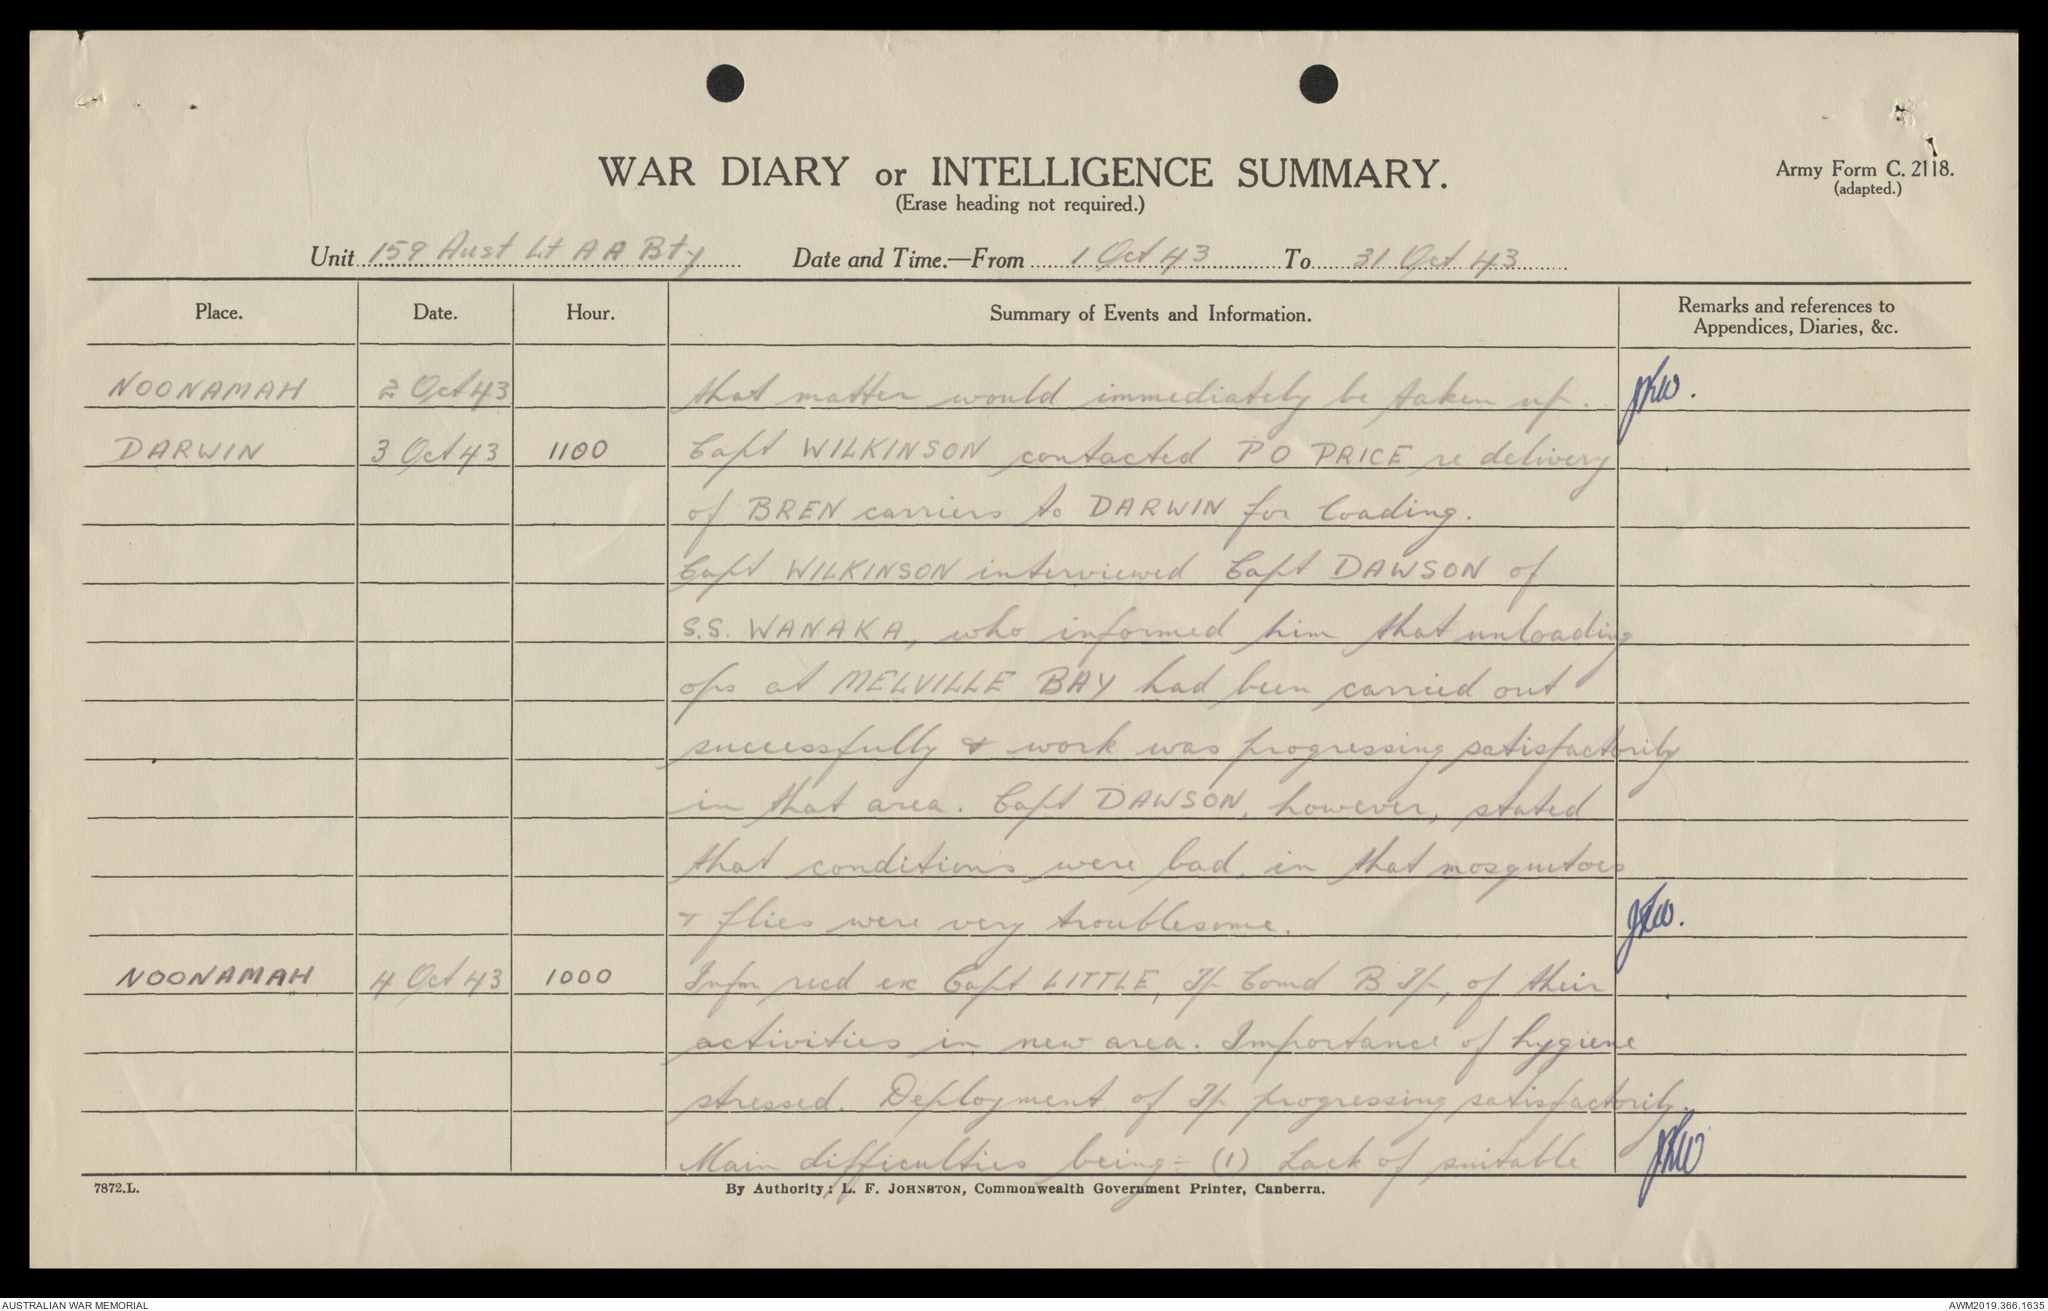 WAR DIARY or INTELLIGENCE SUMMARY.
(Erase heading not required.)
Army Form C. 2118.
(adapted.)
Unit 159 Aust Lt A A Bty Date and Time.—From 1 Oct 43 To 31 Oct 43
Place. Date. Hour. Summary of Events and Information. Remarks and references to
Appendices, Diaries, &c.
NOONAMAH 2 Oct 43 that matter would immediately be taken up.
DARWIN 3 Oct 43 1100 Capt WILKINSON contacted PO PRICE re delivery
of BREN carriers to DARWIN for loading.
Capt WILKINSON interviewed Capt DAWSON of
S.S. WANAKA, who informed him that unloading
ops at MELVILLE BAY had been carried out
successfully & work was progressing satisfactorily
in that area. Capt DAWSON, however, stated
that conditions were bad, in that mosquitoes
& flies were very troublesome.
NOONAMAH 4 Oct 43 1000 Infm recd ex Capt LITTLE, Tp Comd B Tp, of their
activities in new area. Importance of hygiene
stressed. Deployment of Tp progressing satisfactorily.
Main difficulties being:- (1) Lack of suitable
7872.L. By Authority: L. F. JOHNSTON, Commonwealth Government Printer, Canberra.
AUSTRALIAN WAR MEMORIAL AWM2019.366.1635